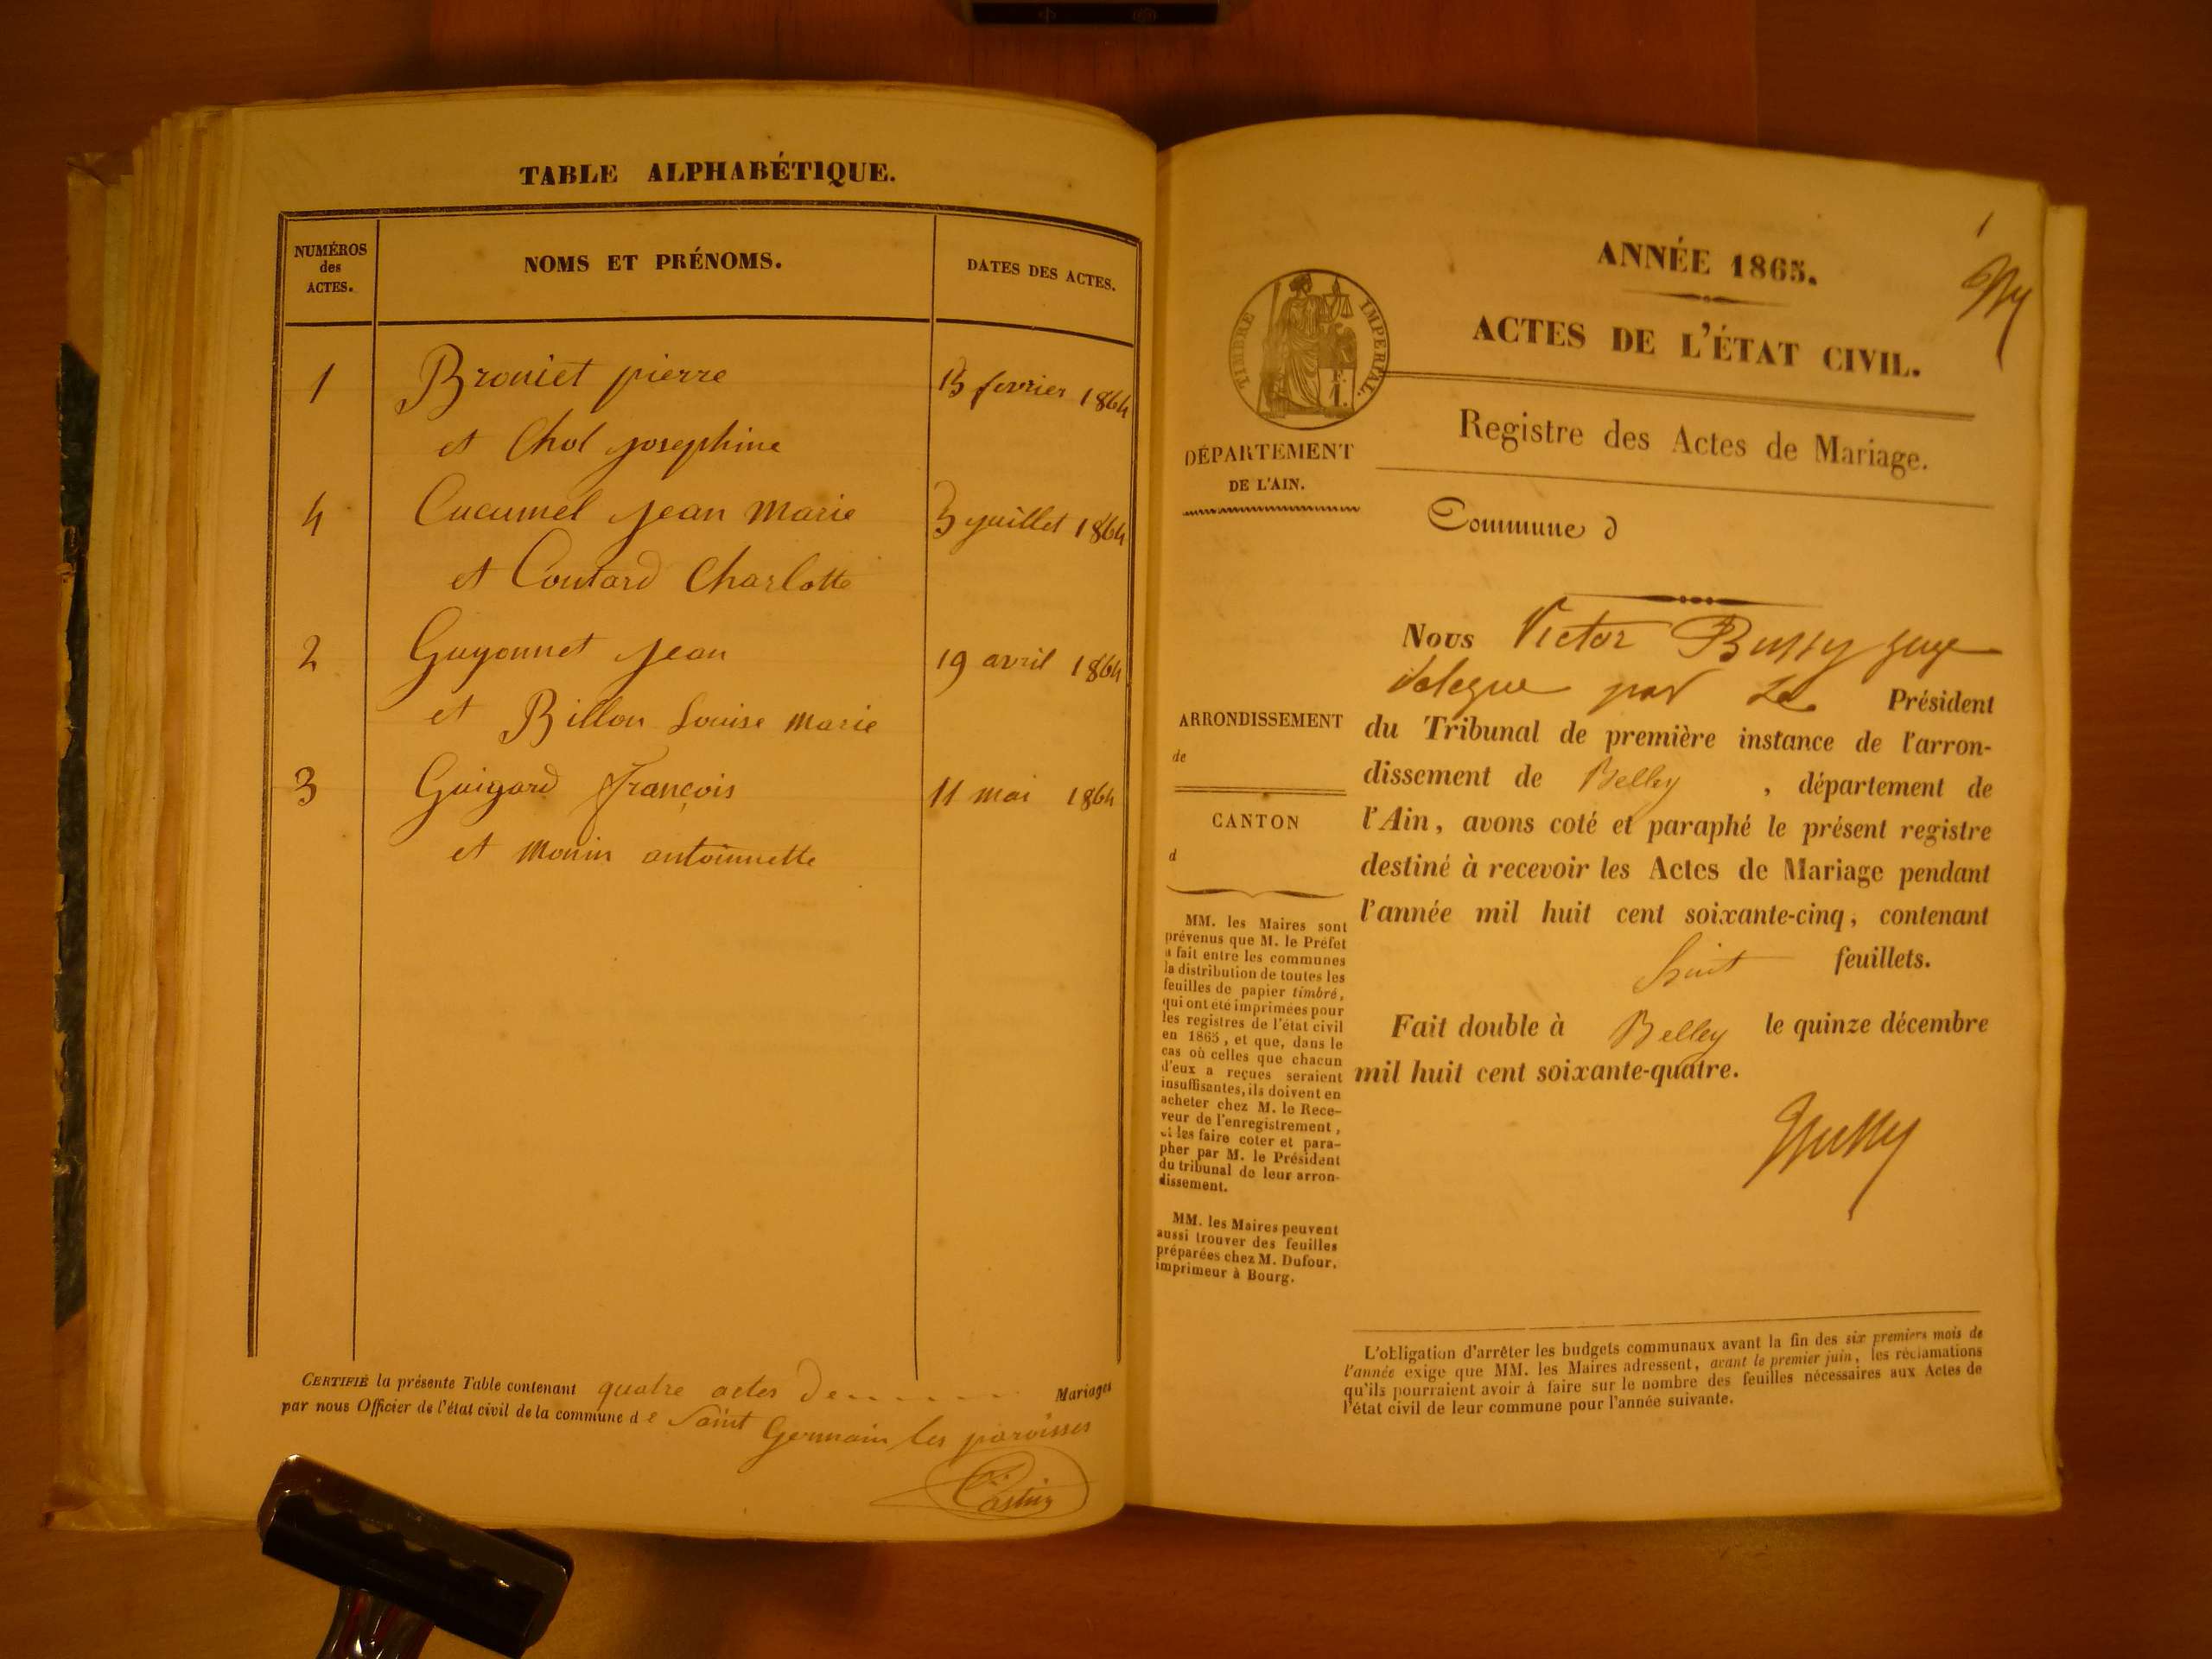 TABLE ALPHABÉTIQUE.
NUMÉROS
des
ACTES.
NOMS ET PRÉNOMS.
DATES DES ACTES.
1 Broniet pierre 15 fevrier 1864
et Chol josephine
4 Cucumel jean Marie 3 juillet 1864
et Coutard Charlotte
2 Guyonnet jean 19 avril 1864
et Billon Louise Marie
3 Guigard françois 11 mai 1864
et Monin antoinnette
CERTIFIÉ la présente Table contenant quatre actes de Mariages
par nous Officier de l'état civil de la commune de Saint
Germain les paroisses
ANNÉE 1865.
ACTES DE L'ÉTAT CIVIL.
TIMBRE IMPERIAL.
F.
1.
Registre des Actes de Mariage.
DÉPARTEMENT
DE L'AIN.
Commune d
Nous Victor Bussy juge
délégué par le Président
du Tribunal de première instance de l'arron-
dissement de Belley, département de
l'Ain, avons coté et paraphé le présent registre
destiné à recevoir les Actes de Mariage pendant
l'année mil huit cent soixante-cinq, contenant
huit feuillets.
Fait double à Belley le quinze décembre
mil huit cent soixante-quatre.
Bussy
ARRONDISSEMENT
de
CANTON
d
MM. les Maires sont
prévenus que M. le Préfet
a fait entre les communes
la distribution de toutes les
feuilles de papier timbré,
qui ont été imprimées pour
les registres de l'état civil
en 1865, et que, dans le
cas où celles que chacun
d'eux a reçues seraient
insuffisantes, ils doivent en
acheter chez M. le Rece-
veur de l'enregistrement,
et les faire coter et para-
pher par M. le Président
du tribunal de leur arron-
dissement.
MM. les Maires peuvent
aussi trouver des feuilles
préparées chez M. Dufour,
imprimeur à Bourg.
L'obligation d'arrêter les budgets communaux avant la fin des six premiers mois de
l'année exige que MM. les Maires adressent, avant le premier juin, les réclamations
qu'ils pourraient avoir à faire sur le nombre des feuilles nécessaires aux Actes de
l'état civil de leur commune pour l'année suivante.